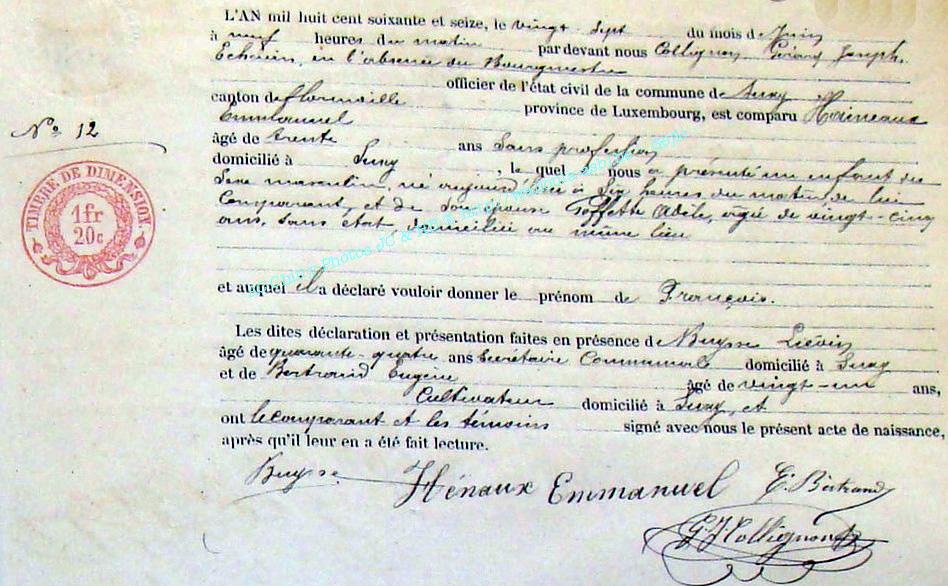 L'AN mil huit cent soixante et seize, le vingt Sept du mois de Juin
à neuf heures du matin par devant nous Collignon Gérard Joseph
Echevin, en l'absence du Bourgmestre
officier de l'état civil de la commune de Suxy
canton de Florenville province de Luxembourg, est comparu Haineaux
Emmanuel
âgé de trente ans Sans profession
domicilié à Suxy, le quel nous a présenté un enfant du
Sexe masculin, né aujourd'hui à Six heures du matin, de lui
Comparant, et de Son épouse Goffette Adile, âgée de vingt-cinq
ans, sans état, domiciliée au même lieu
et auquel il a déclaré vouloir donner le prénom de François.
Les dites déclaration et présentation faites en présence de Buysse Liévin
âgé de quarante-quatre ans Secrétaire Communal domicilié à Suxy
et de Bertrand Eugène âgé de vingt-un ans,
Cultivateur domicilié à Suxy, et
ont le comparant et les témoins signé avec nous le présent acte de naissance,
après qu'il leur en a été fait lecture.
Nº 12
TIMBRE DE DIMENSION
1fr
20c
Buysse Hénaux Emmanuel E. Bertrand
G J Collignon